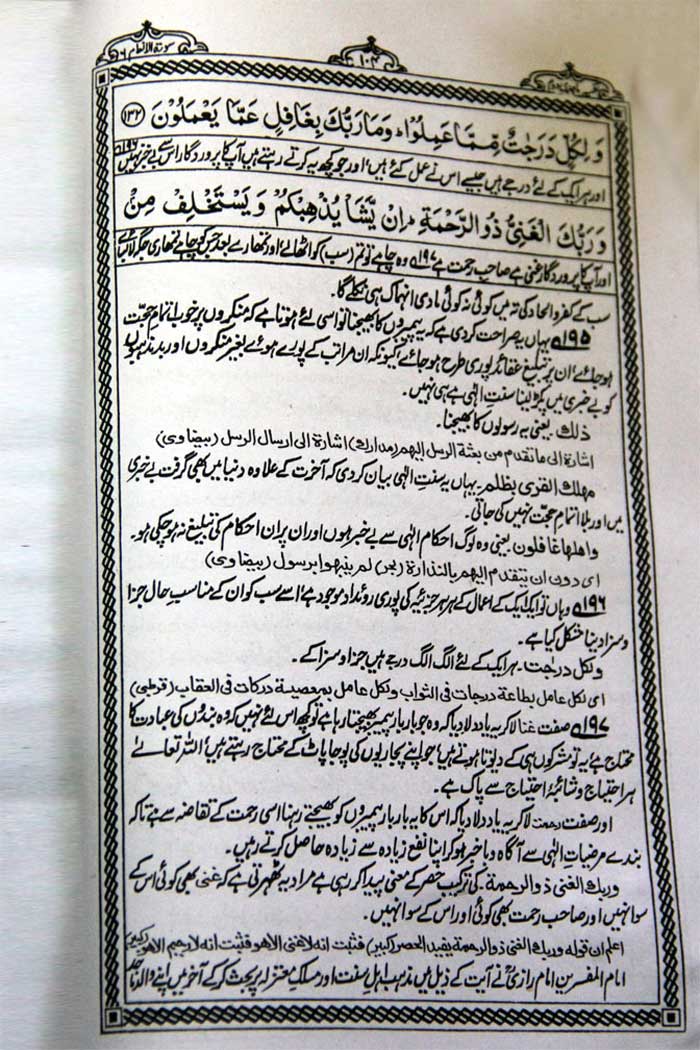 سورة الانعام ٦
١٠٤
وَلِكُلٍّ دَرَجٰتٌ مِّمَّا عَمِلُوْا ؕ وَمَا رَبُّكَ بِغَافِلٍ عَمَّا يَعْمَلُوْنَ ﴿۱۳۲﴾
اور ہر ایک کے لئے درجے ہیں جیسے اس نے عمل کئے ہیں اور جو کچھ یہ کرتے رہتے ہیں آپ کا پروردگار اس سے بے خبر نہیں ۱۹۶
وَرَبُّكَ الْغَنِىُّ ذُو الرَّحْمَةِ ؕ اِنْ يَّشَاْ يُذْهِبْكُمْ وَيَسْتَخْلِفْ مِنْ
اور آپ کا پروردگار غنی ہے صاحب رحمت ہے ۱۹۷ وہ چاہے تو تم (سب) کو اٹھالے اور تمہارے بعد جس کو چاہے تمہاری جگہ لا بسائے
سب کے کفر و الحاد کی تہ میں کوئی نہ کوئی مادی انہماک ہی نکلے گا۔
۱۹۵ یہاں یہ صراحت کردی ہے کہ پیمبروں کا بھیجنا تو اسی لئے ہوتا ہے کہ منکروں پر خوب اتمام حجت
ہوجائے، ان پر تبلیغ عقائد پوری طرح ہوجائے، کیونکہ ان مراتب کے پورے ہوئے بغیر منکروں اور بدمذہبوں
کو بے خبری میں پکڑ لینا سنت الٰہی ہے ہی نہیں۔
ذلك۔ یعنی یہ رسولوں کا بھیجنا۔
اشارة الى ما تقدم من بعثة الرسل اليهم (مدارك) اشارة الى ارسال الرسل (بيضاوى)
مهلك القرى بظلم۔ یہاں یہ سنت الٰہی بیان کردی کہ آخرت کے علاوہ دنیا میں بھی گرفت بے خبری
میں اور بلا اتمام حجت نہیں کی جاتی۔
واهلها غافلون۔ یعنی وہ لوگ احکام الٰہی سے بے خبر ہوں اور ان پر ان احکام کی تبلیغ نہ ہوچکی ہو۔
اى دون ان يتقدم اليهم بالنذارة (بحر) لم ينبهوا برسول (بيضاوى)
۱۹۶ وہاں تو ایک ایک کے اعمال کے ہر ہر جزئیہ کی پوری روئداد موجود ہے، اسے سب کو ان کے مناسب حال جزا
وسزا دینا مشکل کیا ہے۔
ولكل درجٰت۔ ہر ایک کے لئے الگ الگ درجے ہیں جزا و سزا کے۔
اى لكل عامل بطاعة درجات فى الثواب ولكل عامل بمعصية دركات فى العقاب (قرطبى)
۱۹۷ صفت غنا لاکر یہ یاد دلا دیا کہ وہ جو بار بار پیمبر بھیجتا رہا ہے تو کچھ اس لئے نہیں کہ وہ بندوں کی عبادت کا
محتاج ہے، یہ تو مشرکوں ہی کے دیوتا ہوتے ہیں، جو اپنے پجاریوں کی پوجا پاٹ کے محتاج رہتے ہیں، اللہ تعالےٰ
ہر احتیاج و شائبۂ احتیاج سے پاک ہے۔
اور صفت رحمت لاکر یہ یاد دلا دیا کہ اس کا یہ بار بار پیمبروں کو بھیجتے رہنا اسی رحمت کے تقاضہ سے ہے تاکہ
بندے مرضیات الٰہی سے آگاہ و باخبر ہوکر اپنا نفع زیادہ سے زیادہ حاصل کرتے رہیں۔
وربك الغنى ذو الرحمة۔ کی ترکیب حصر کے معنی پیدا کر رہی ہے مراد یہ ٹھہرتی ہے کہ غنی بھی کوئی اس کے
سوا نہیں اور صاحب رحمت بھی کوئی اور اس کے سوا نہیں۔
اعلم ان قوله وربك الغنى ذو الرحمة يفيد الحصر (كبير) فثبت انه لا غنى الا هو فثبت انه لا رحيم الا هو (كبير)
امام المفسرین امام رازیؒ نے آیت کے ذیل میں مذہب اہل سنت اور مسلک معتزلہ پر بحث کرکے آخر میں اپنے والد ماجد